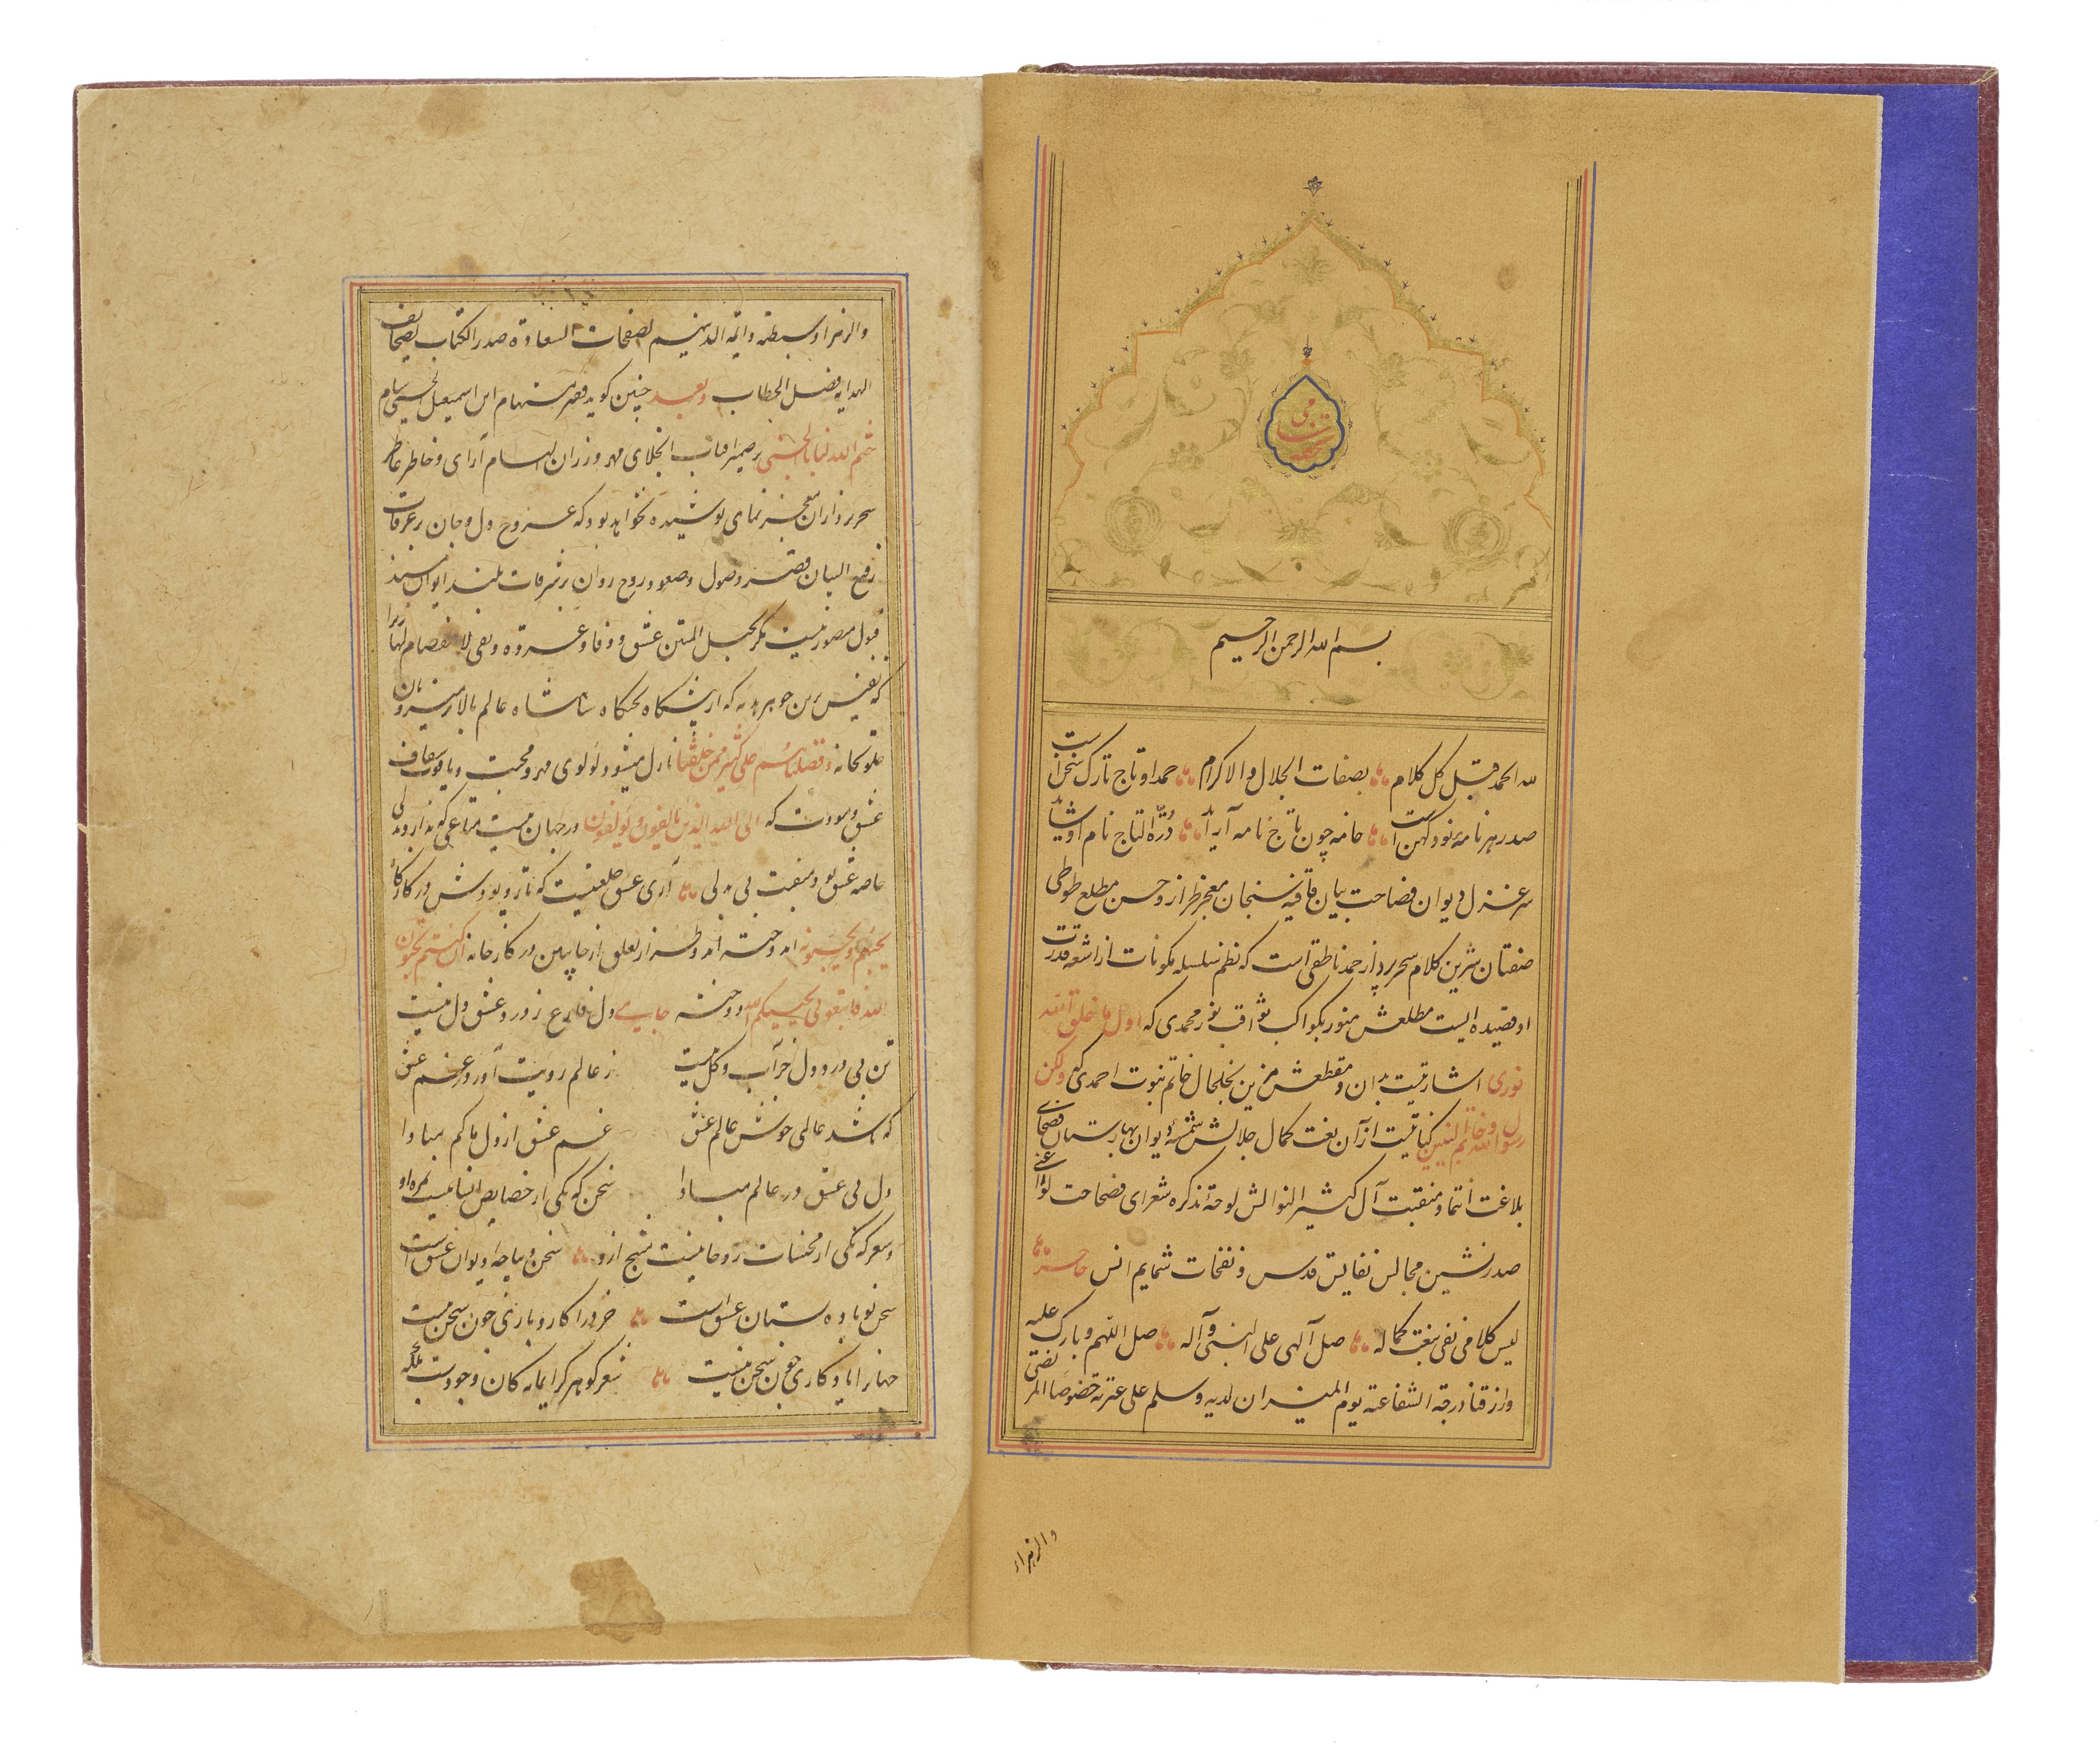 بسم الله الرحمن الرحیم
لله الحمد قبل کل کلام بصفات الجلال والاکرام حمد او تاج تارک سخن است
صدر هر نامهٔ نو و کهن است خامه چون تاج نامه آراید دُرّة التاج نام او شاید
سر غزل دیوان فصاحت بیان قافیه سنجان معجز طراز و حسن مطلع طوطی
صفتان شیرین کلام سحر پرداز حمد ناطقی است که نظم سلسله مکونات از اشعه قدرت
او قصیده ایست مطلعش منور بکواکب ثواقب نور محمدی که اول ما خلق الله
نوری اشارتیست بدان و مقطعش مزین بخلخال خاتم نبوت احمدی که ولکن
رسول الله و خاتم النبیین کنایتیست از آن نعت کمال جلالش شمسهٔ دیوان بهارستان فصحای
بلاغت انتما و منقبت آل کثیر النوالش لوحهٔ تذکره شعرای فصاحت لوا اعنی
صدرنشین مجالس نفایس قدس و نفحات شمایم انس
لیس کلامی یفی بنعت کماله صل الهی علی النبی وآله صل اللهم وبارک علیه
وارزقنا درجة الشفاعة یوم المیزان لدیه وسلم علی عترته خصوصا المرتضی
والزهراء
والزهراء وسبطیه وائمة الدین لصفحات السعادة صدر الکتاب لصحائف
الهدایه فصل الخطاب وبعد چنین گوید ابن اسمعیل الحسینی سام
ختم الله لنا بالحسنی بر ضمیر آفتاب انجلای مهر ورزان الهام آرای و خاطر عاطر
سحر پردازان معجز نمای پوشیده نخواهد بود که عروج دل و جان بر غرفات
رفیع البیان قصر وصول و صعود روح روان بر شرفات بلند ایوان
قبول متصور نیست مگر بحبل المتین عشق و وفا و عروه وثقی لا انفصام لها زیرا
که نفیس ترین جوهری که از پیشگاه شاهنشاه عالم بالا
خلوتخانه وفضلناهم علی کثیر ممن خلقنا نازل میشود لؤلؤی مهر و محبت و یاقوت
عشق و مودت که ان الله الذین یألفون ویؤلفون در جهان نیست متاعی که ندارد بدلی
خاصه عشق تو و منقبت بی بدلی آری عشق خلعتیست که تار و پودش در کارگاه
یحبهم ویحبونه اند و طراز تعلق از جانبین در کارخانه ان کنتم تحبون
الله فاتبعونی یحببکم الله دوخته دل فارغ ز درد عشق دل نیست
تن بی درد دل جز آب و گل نیست ز عالم رویت آور در غم عشق
که باشد عالمی خوش عالم عشق غم عشق از دل ما کم مبادا
دل بی عشق در عالم مبادا سخن که یکی از خصایص انسانیست
و شعر که یکی از محسنات روحانیست نتیج ازو سخن دیباچه دیوان عشق است
سخن نوباوه بستان عشق است خرد را کار و باری چون سخن نیست
جهان را یادگاری چون سخن نیست شعر گوهر گرانمایه کان وجودست بلکه